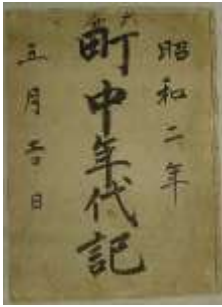 昭和二年
町中年代記
五月吉日